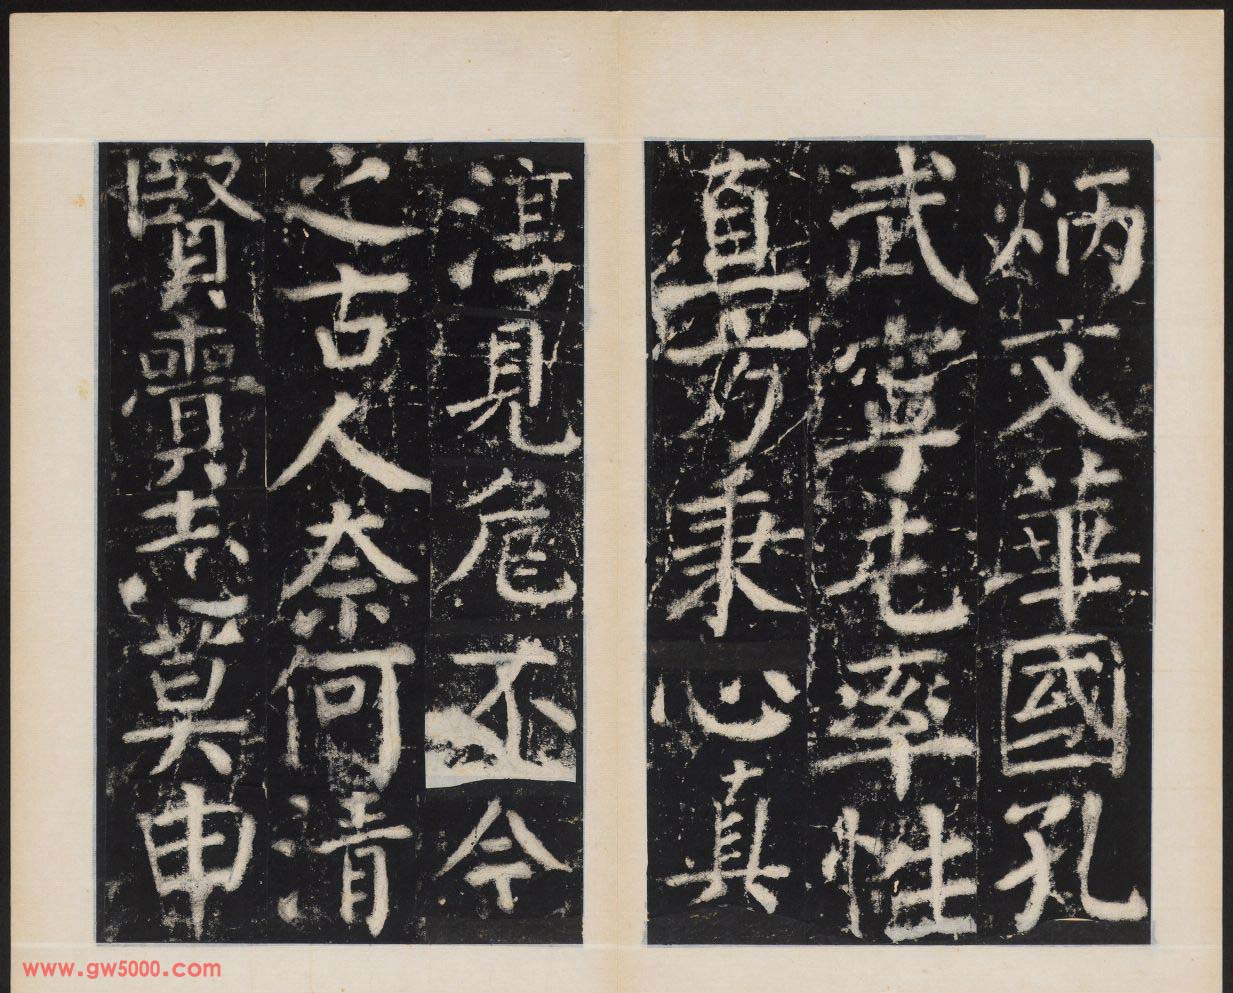 炳文華國孔
武寧屯率性
直方秉心真
淳見危丕令
之古人奈何清
賢霣志莫申
www.gw5000.com